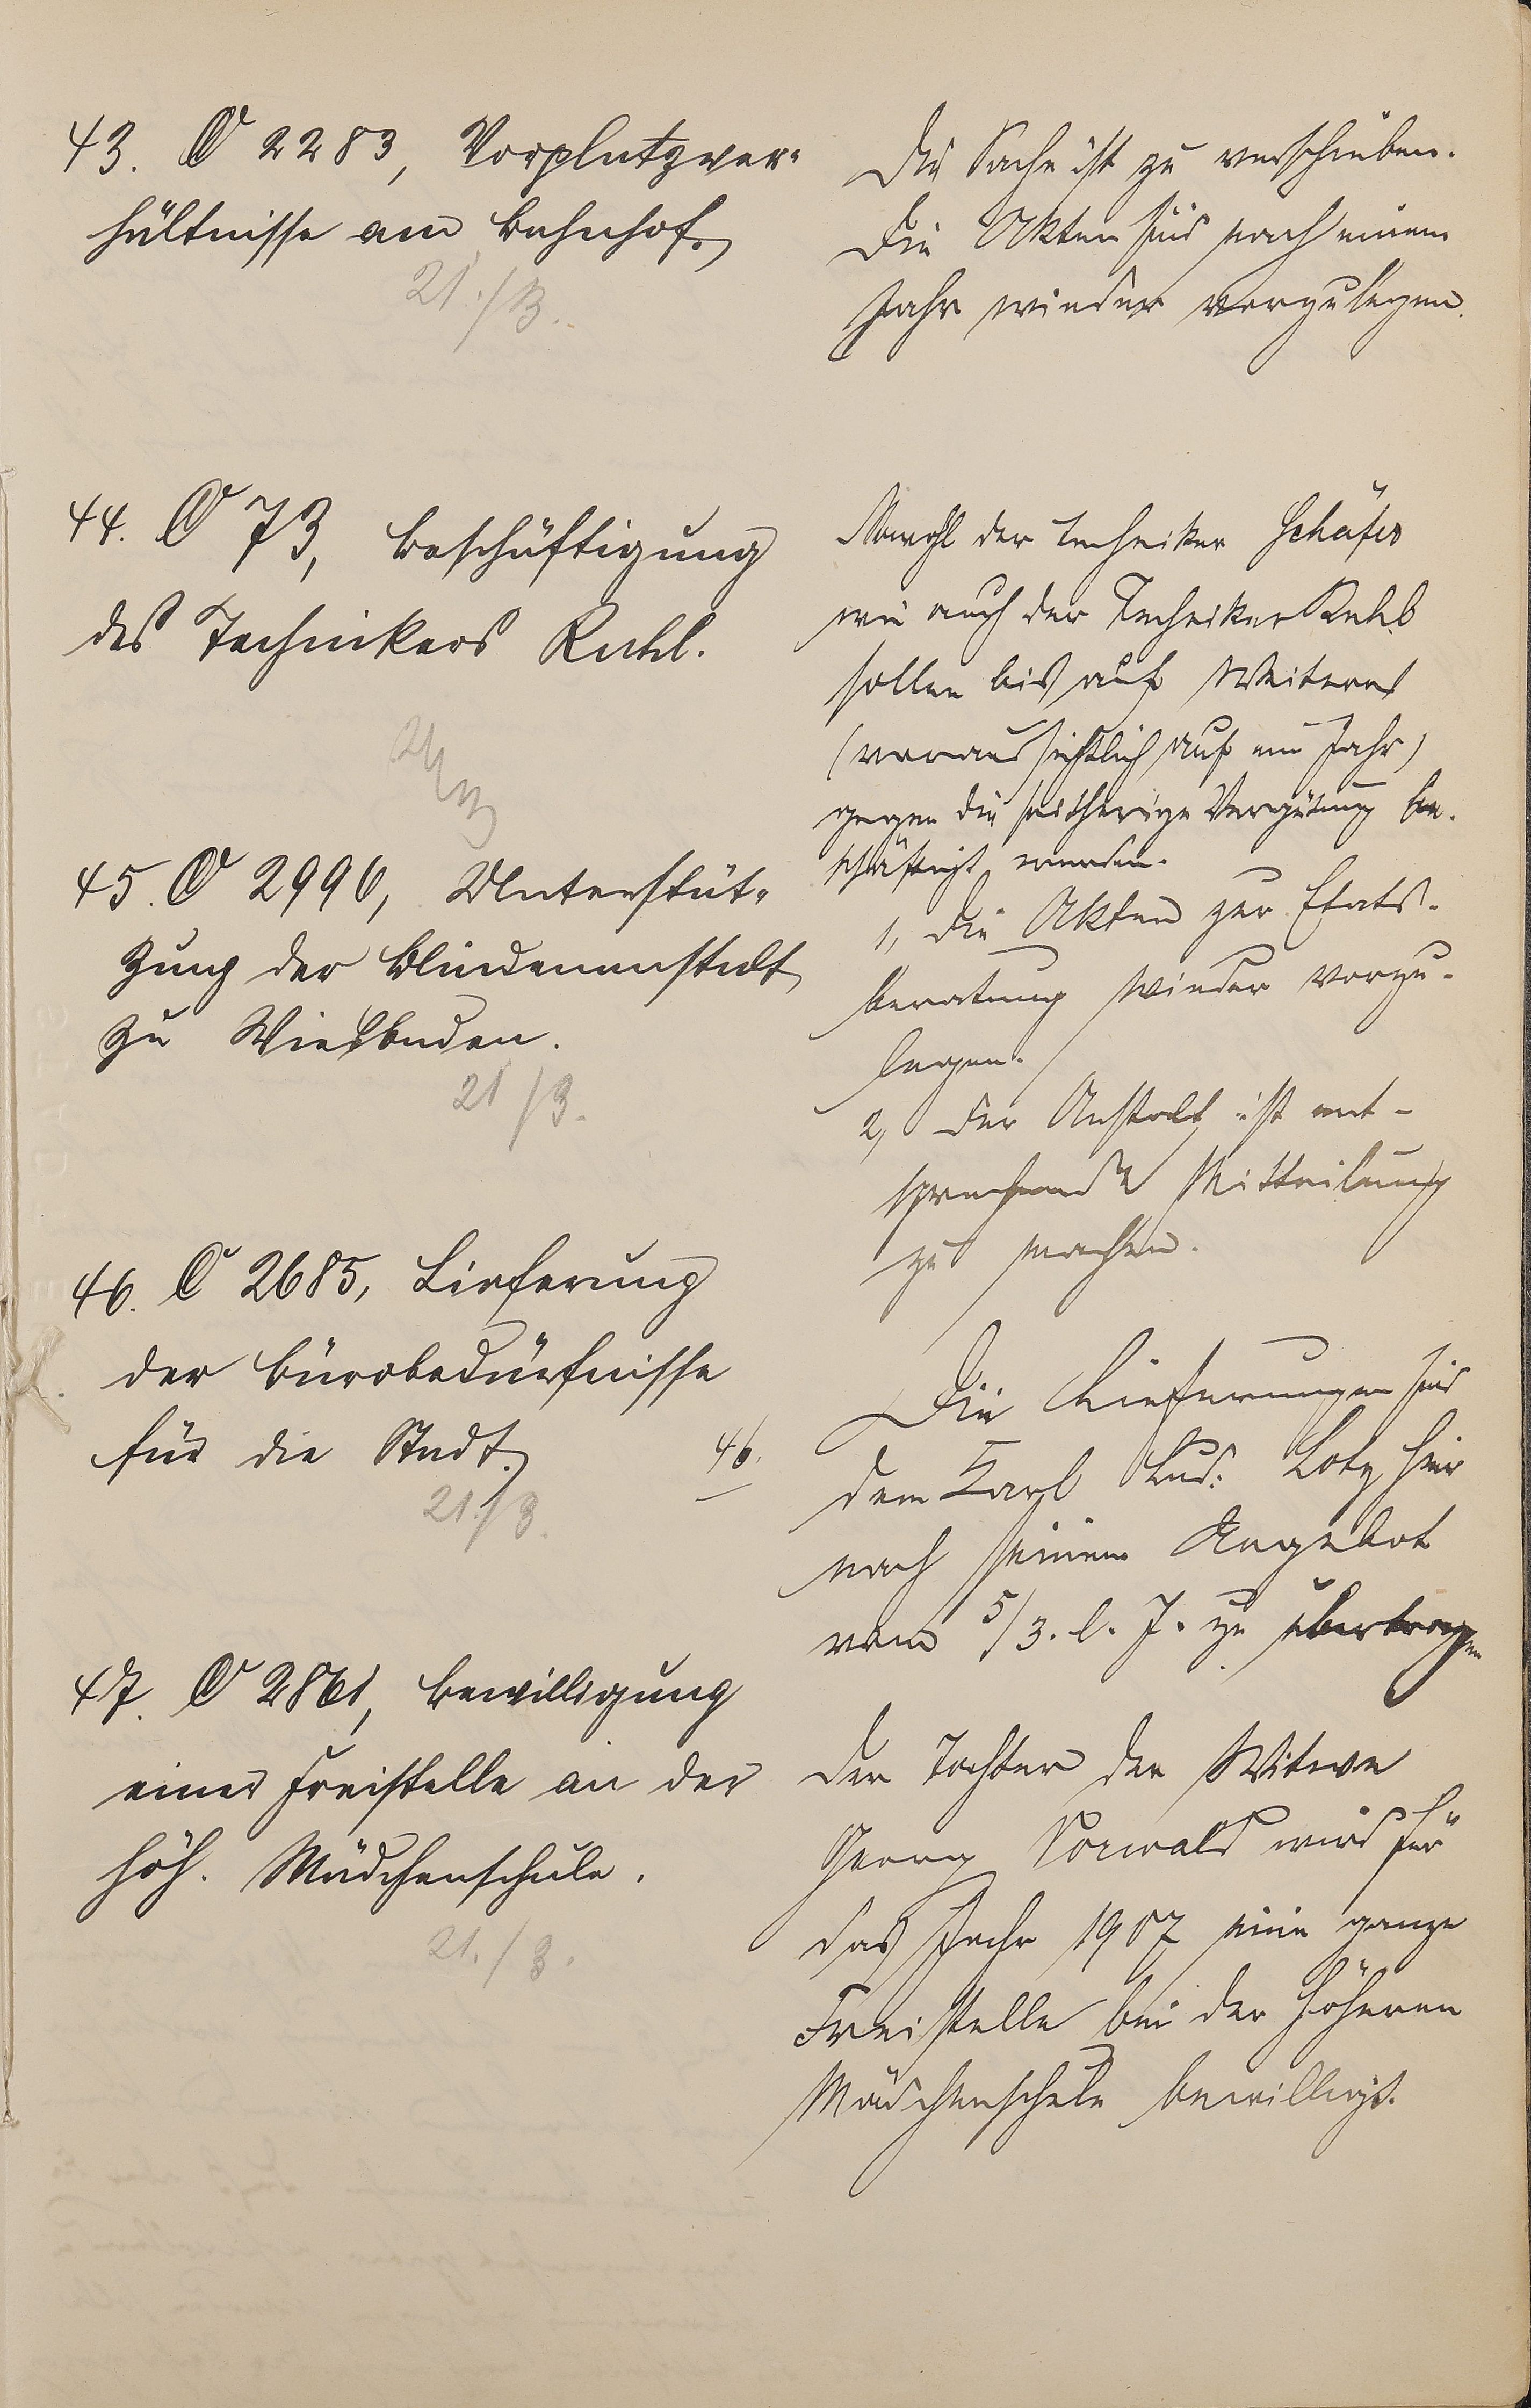 43. O 2283, Vorplatzver-
hältnisse am Bahnhof.
21./3.
Die Sache ist zu verschieben.
Die Akten sind nach einem
Jahr wieder vorzulegen.
44. O 73, Beschäftigung
des Technikers
21/3
Sowohl der Techniker Schäfer
wie auch der Techniker
sollen bis auf Weiteres
(voraussichtlich auf ein Jahr)
gegen die seitherige Vergütung be-
schäftigt werden.
45. O 2996, Unterstüt-
zung der Blindenanstalt
zu Wiesbaden.
21/3.
1, Die Akten zur Etats-
beratung wieder vorzu-
legen.
2, Der Anstalt ist ent-
sprechende Mitteilung
zu machen.
46. O 2685, Lieferung
der Bürobedürfnisse
für die Stadt.
21./3.
46.
Die Lieferungen sind
dem Karl Lud. Lotz hier
nach seinem Angebot
vom 5/3. l. J. zu übertragen
47. O 2861, Bewilligung
einer Freistelle an der
höh. Mädchenschule.
21./3.
Der Tochter der Witwe
Georg wird für
das Jahr 1907 eine ganze
Freistelle bei der höheren
Mädchenschule bewilligt.